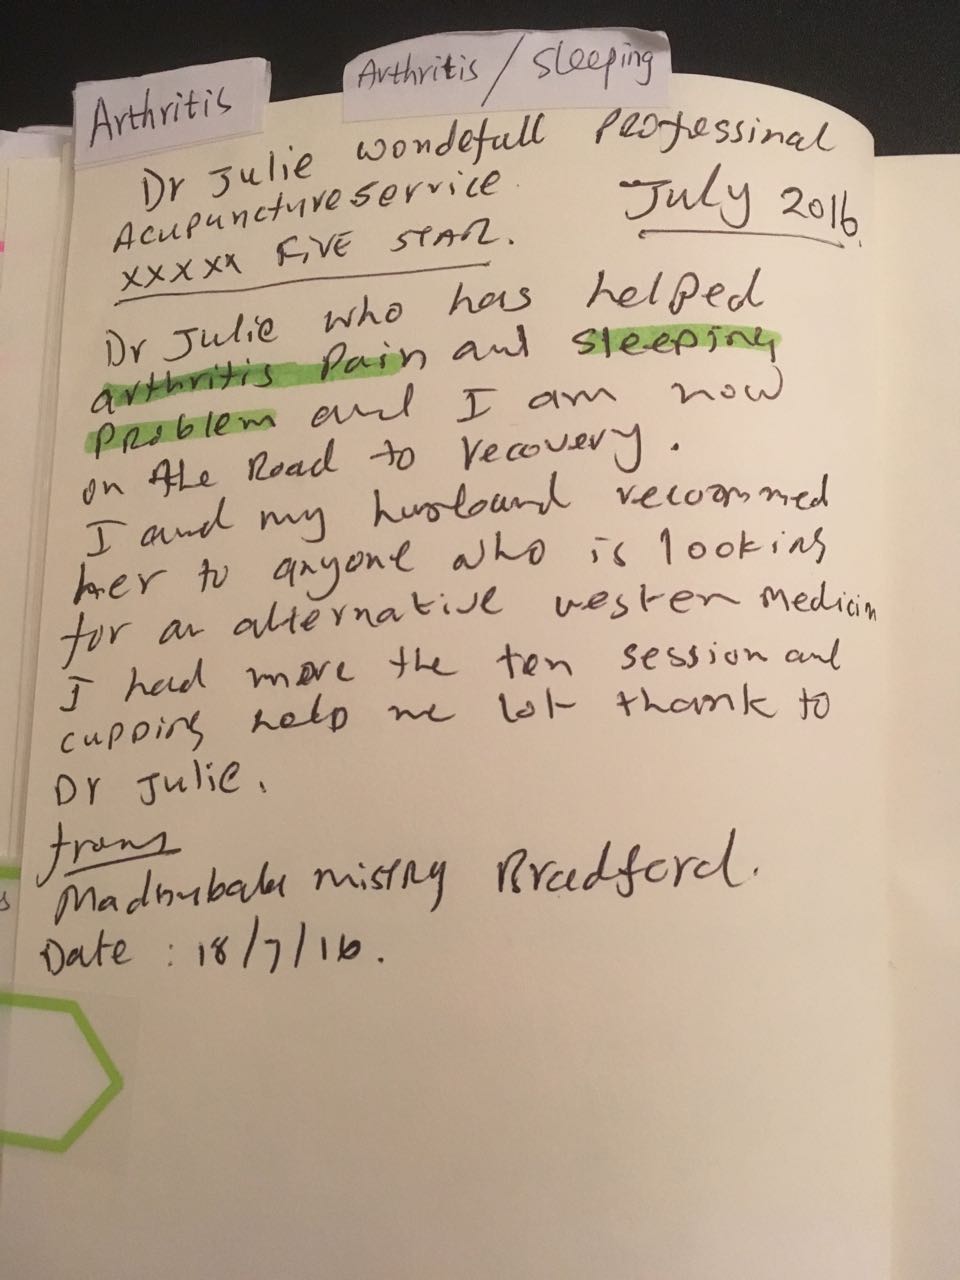 Arthritis
Arthritis / Sleeping
Dr Julie wondefull Professinal
Acupuncture service.
July 2016.
xxxxx FIVE STAR.
Dr Julie who has helped
arthritis Pain and sleeping
Problem and I am now
on the Road to recovery.
I and my husband recommed
her to anyone who is looking
for an alternative western Medicin
I had more the ten session and
cupping help me lot thank to
Dr Julie.
from
Madhubala mistry Bradford.
Date : 18/7/16.